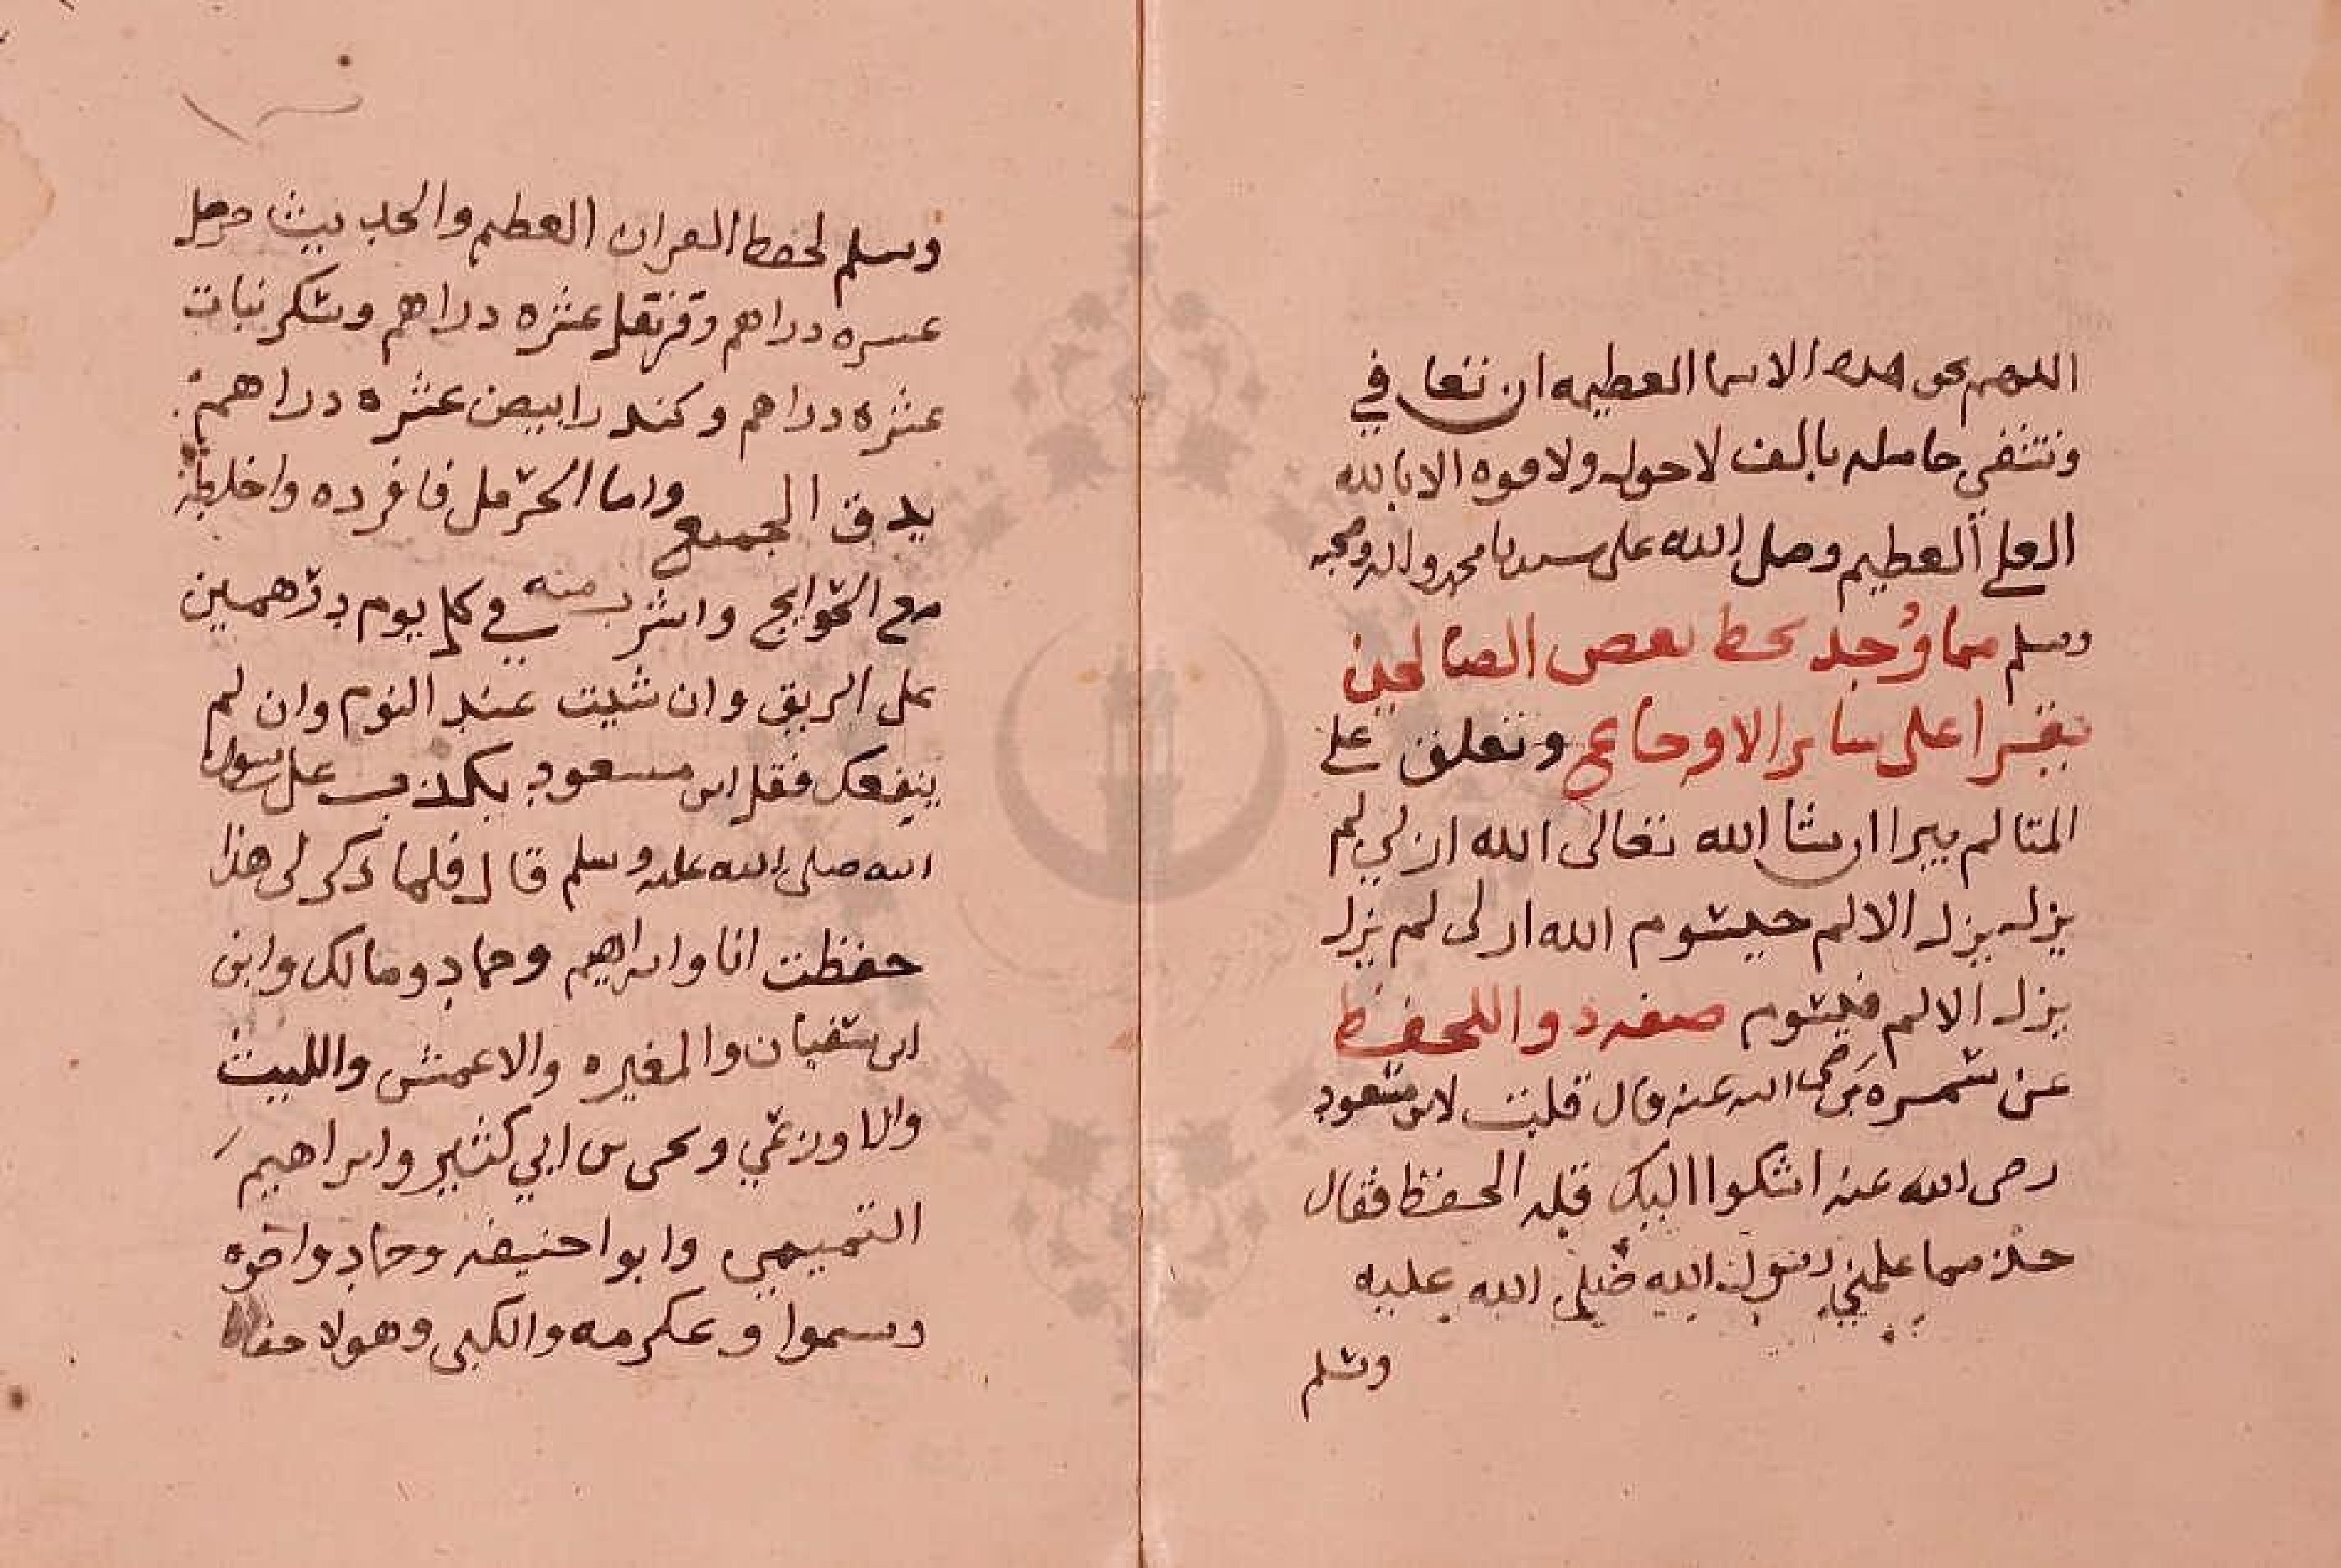 اللهم بحق هده الاسما العطيمه ان تعافي
وتشفي حامله بالف لاحول ولا قوه الا بالله
العلي العطيم وصلى الله على سيدنا محمد واله وصحبه
وسلم مما وُجد بخط بعض الصالحين
يقرا على ساير الاوجاع وتعلق على
المتالم يبرا ان شا الله تعالى الله ازلي لم
يزل يزل الالم حيثوم الله ازلى لم يزل
يزل الالم فيثوم صفه دوا للحفظ
عن سمره رضى الله عنه قال قلت لابن مسعود
رضى الله عنه اشكوا اليك قله الحفظ فقال
خذ مما علمني رسول الله صلى الله عليه
وسلم
وسلم لحفظ القران العظيم والحديث حرمل
عشره دراهم وقرنفل عشره دراهم وسكر نبات
عشره دراهم وكندر ابيض عشره دراهم
يدق الجميع واما الحرمل فافرده واخلطه
مع الحوايج واشرب منه في كل يوم درهمين
على الريق وان شيت عند النوم وان لم
ينفعك فقل ابن مسعود يكذب على رسول
الله صلى الله عليه وسلم قال فلما ذكر لى هذا
حفظت انا وابراهيم وحماد ومالك وابن
ابى سفيان والمغيره والاعمش والليث
والاوزعي ويحيى بن ابي كثير وابراهيم
التميمي وابوا حنيفه وحماد واخوه
وسموا وعكرمه والكلبى وهولا